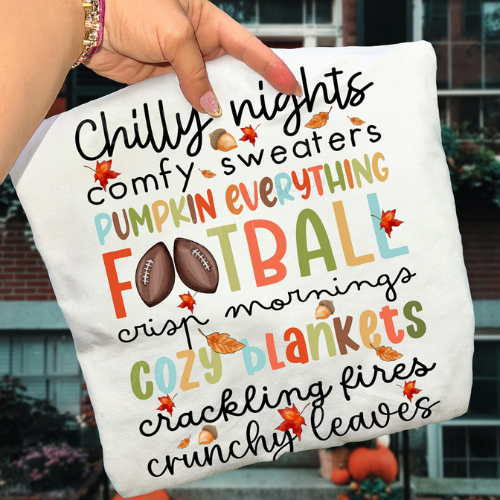 Chilly nights
comfy sweaters
PUMPKIN EVERYTHING
FOOTBALL
crisp mornings
cozy blankets
crackling fires
crunchy leaves